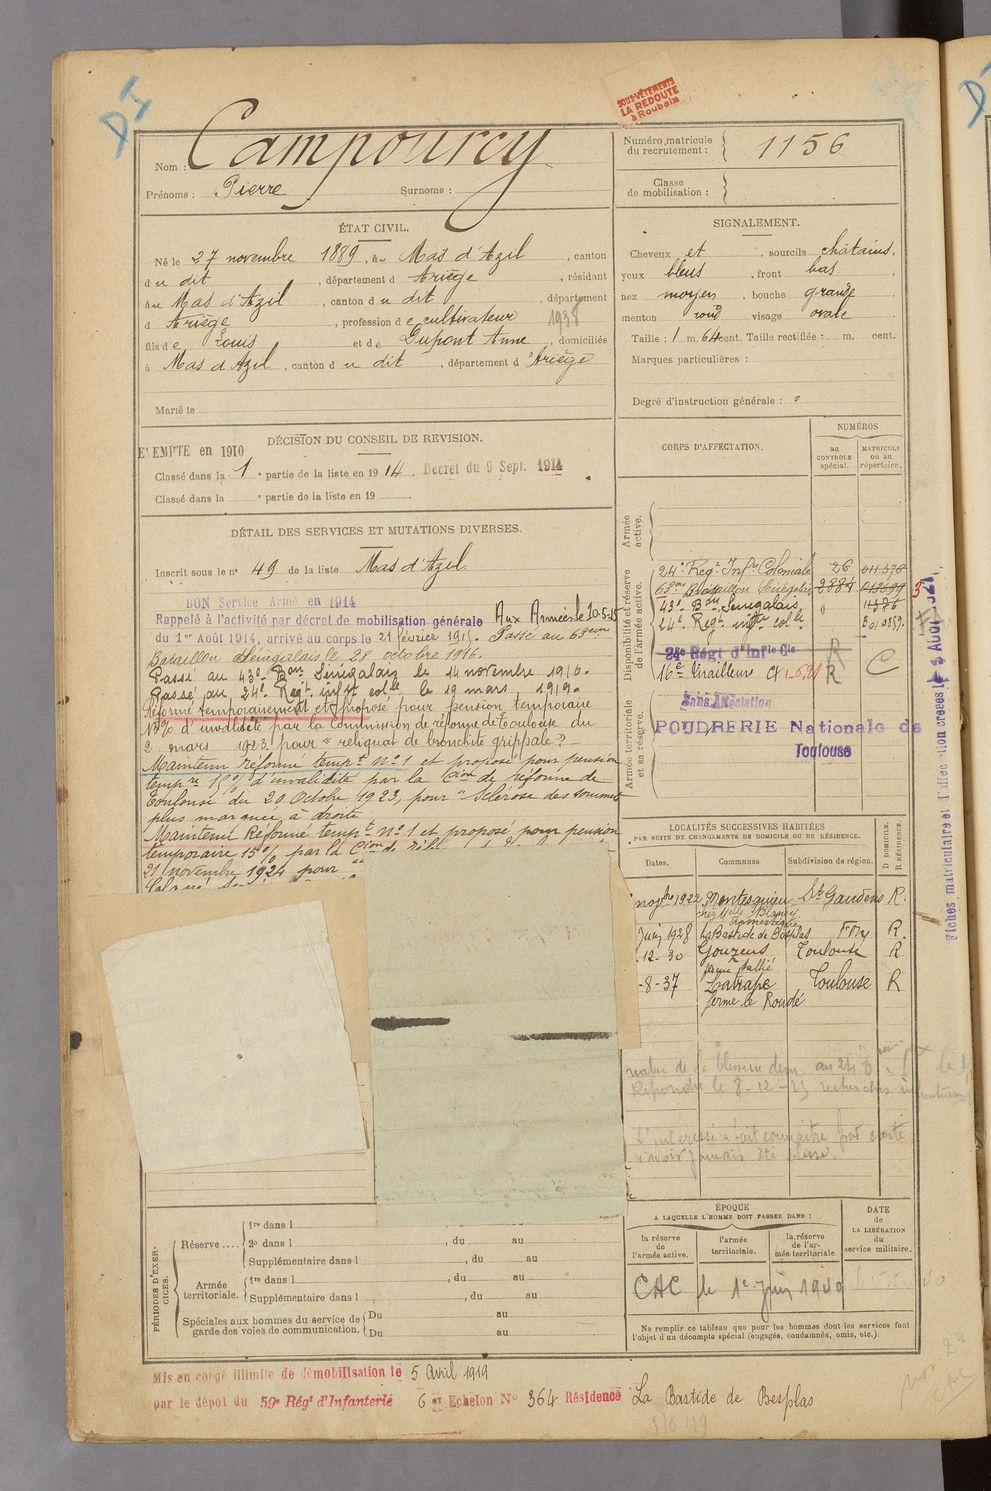 DI
SOUS-VÊTEMENTS
LA REDOUTE
à Roubaix
Nom : Campourcy
Prénoms : Pierre Surnoms :
Numéro matricule
du recrutement : 1156
Classe
de mobilisation :
ÉTAT CIVIL.
Né le 27 novembre 1889, à u Mas d'Azil, canton
d u dit, département d Ariège, résidant
à u Mas d'Azil, canton d u dit, département
d Ariège, profession d e cultivateur 1938
fils d e Louis et d e Dupont Anne, domiciliés
à Mas d'Azil, canton d u dit, département d 'Ariège
Marié le
SIGNALEMENT.
Cheveux et, sourcils châtains,
yeux bleus, front bas,
nez moyen, bouche grande,
menton rond visage ovale
Taille : 1 m. 64 cent. Taille rectifiée : m. cent.
Marques particulières :
Degré d'instruction générale : 0
DÉCISION DU CONSEIL DE REVISION.
EXEMPTE en 1910
Classé dans la 1 e partie de la liste en 1914. Décret du 9 Sept. 1914
Classé dans la e partie de la liste en 19
DÉTAIL DES SERVICES ET MUTATIONS DIVERSES.
Inscrit sous le n° 49 de la liste Mas d'Azil
BON Service Armé en 1914
Rappelé à l'activité par décret de mobilisation générale Aux Armées le 20-5-15
du 1er Août 1914, arrivé au corps le 21 février 1915. Passé au 63ème
Bataillon Sénégalais le 28 octobre 1916.
Passé au 43e Bon Sénégalais le 14 novembre 1916.
Passé au 24e Regt infie colle le 19 mars 1919.
Réformé temporairement et proposé pour pension temporaire
d'invalidité par la Commission de réforme de Toulouse du
2 mars 1923 pour " reliquat de bronchite grippale "
Maintenu réformé tempt n° 1 et proposé pour pension
tempre 15% d'invalidité par la Cion de réforme de
Toulouse du 20 Octobre 1923, pour " Sclérose des sommets
plus marquée à droite
Maintenu Réformé tempt n° 1 et proposé pour pension
temporaire 15% par la Cion de
21 novembre 1924 pour
CORPS D'AFFECTATION.
NUMÉROS
au CONTROLE spécial.
MATRICULE ou au répertoire.
Armée active.
Disponibilité et réserve de l'armée active.
24e Regt Infie Coloniale 26 011.376
63eme Bataillon Sénégalais 2884 012599
43e Bon Sénégalais " 11376
24e Regt infie colle
24e Régt d'Infie Cle R
16e Tirailleurs R C
Armée territoriale et sa réserve.
Sans Affectation
POUDRERIE Nationale de
Toulouse
Fiches matriculaire et d'affectation créées le
LOCALITÉS SUCCESSIVES HABITÉES
PAR SUITE DE CHANGEMENTS DE DOMICILE OU DE RÉSIDENCE.
D DOMICILE.
R RÉSIDENCE.
Dates. Communes Subdivision de région.
novbre 1922 Montesquieu St Gaudens R.
Juin 1928 La Bastide de Besplas Foix R.
12-30 Gouzens Toulouse R
-8-37 Latrape Toulouse R
ferme le Roudé
Répondu le 8-12-25 recherches
L'intéressé a fait connaître par carte
n'avoir jamais été blessé.
PÉRIODES D'EXERCICES.
Réserve....
1re dans l
2e dans l , du au
Supplémentaire dans l , du au
Armée territoriale.
1re dans l , du au
Supplémentaire dans l , du au
Spéciales aux hommes du service de garde des voies de communication.
Du au
Du au
ÉPOQUE
A LAQUELLE L'HOMME DOIT PASSER DANS :
la réserve de l'armée active.
l'armée territoriale.
la réserve de l'armée territoriale.
DATE
de
LA LIBÉRATION
du
service militaire.
CAC le 1er Juin 1940
Ne remplir ce tableau que pour les hommes dont les services font
l'objet d'un décompte spécial (engagés, condamnés, omis, etc.).
Mis en congé illimité de démobilisation le 5 Avril 1919
par le dépôt du 59e Régt d'Infanterie 6 e Echelon N° 364 Résidence La Bastide de Besplas